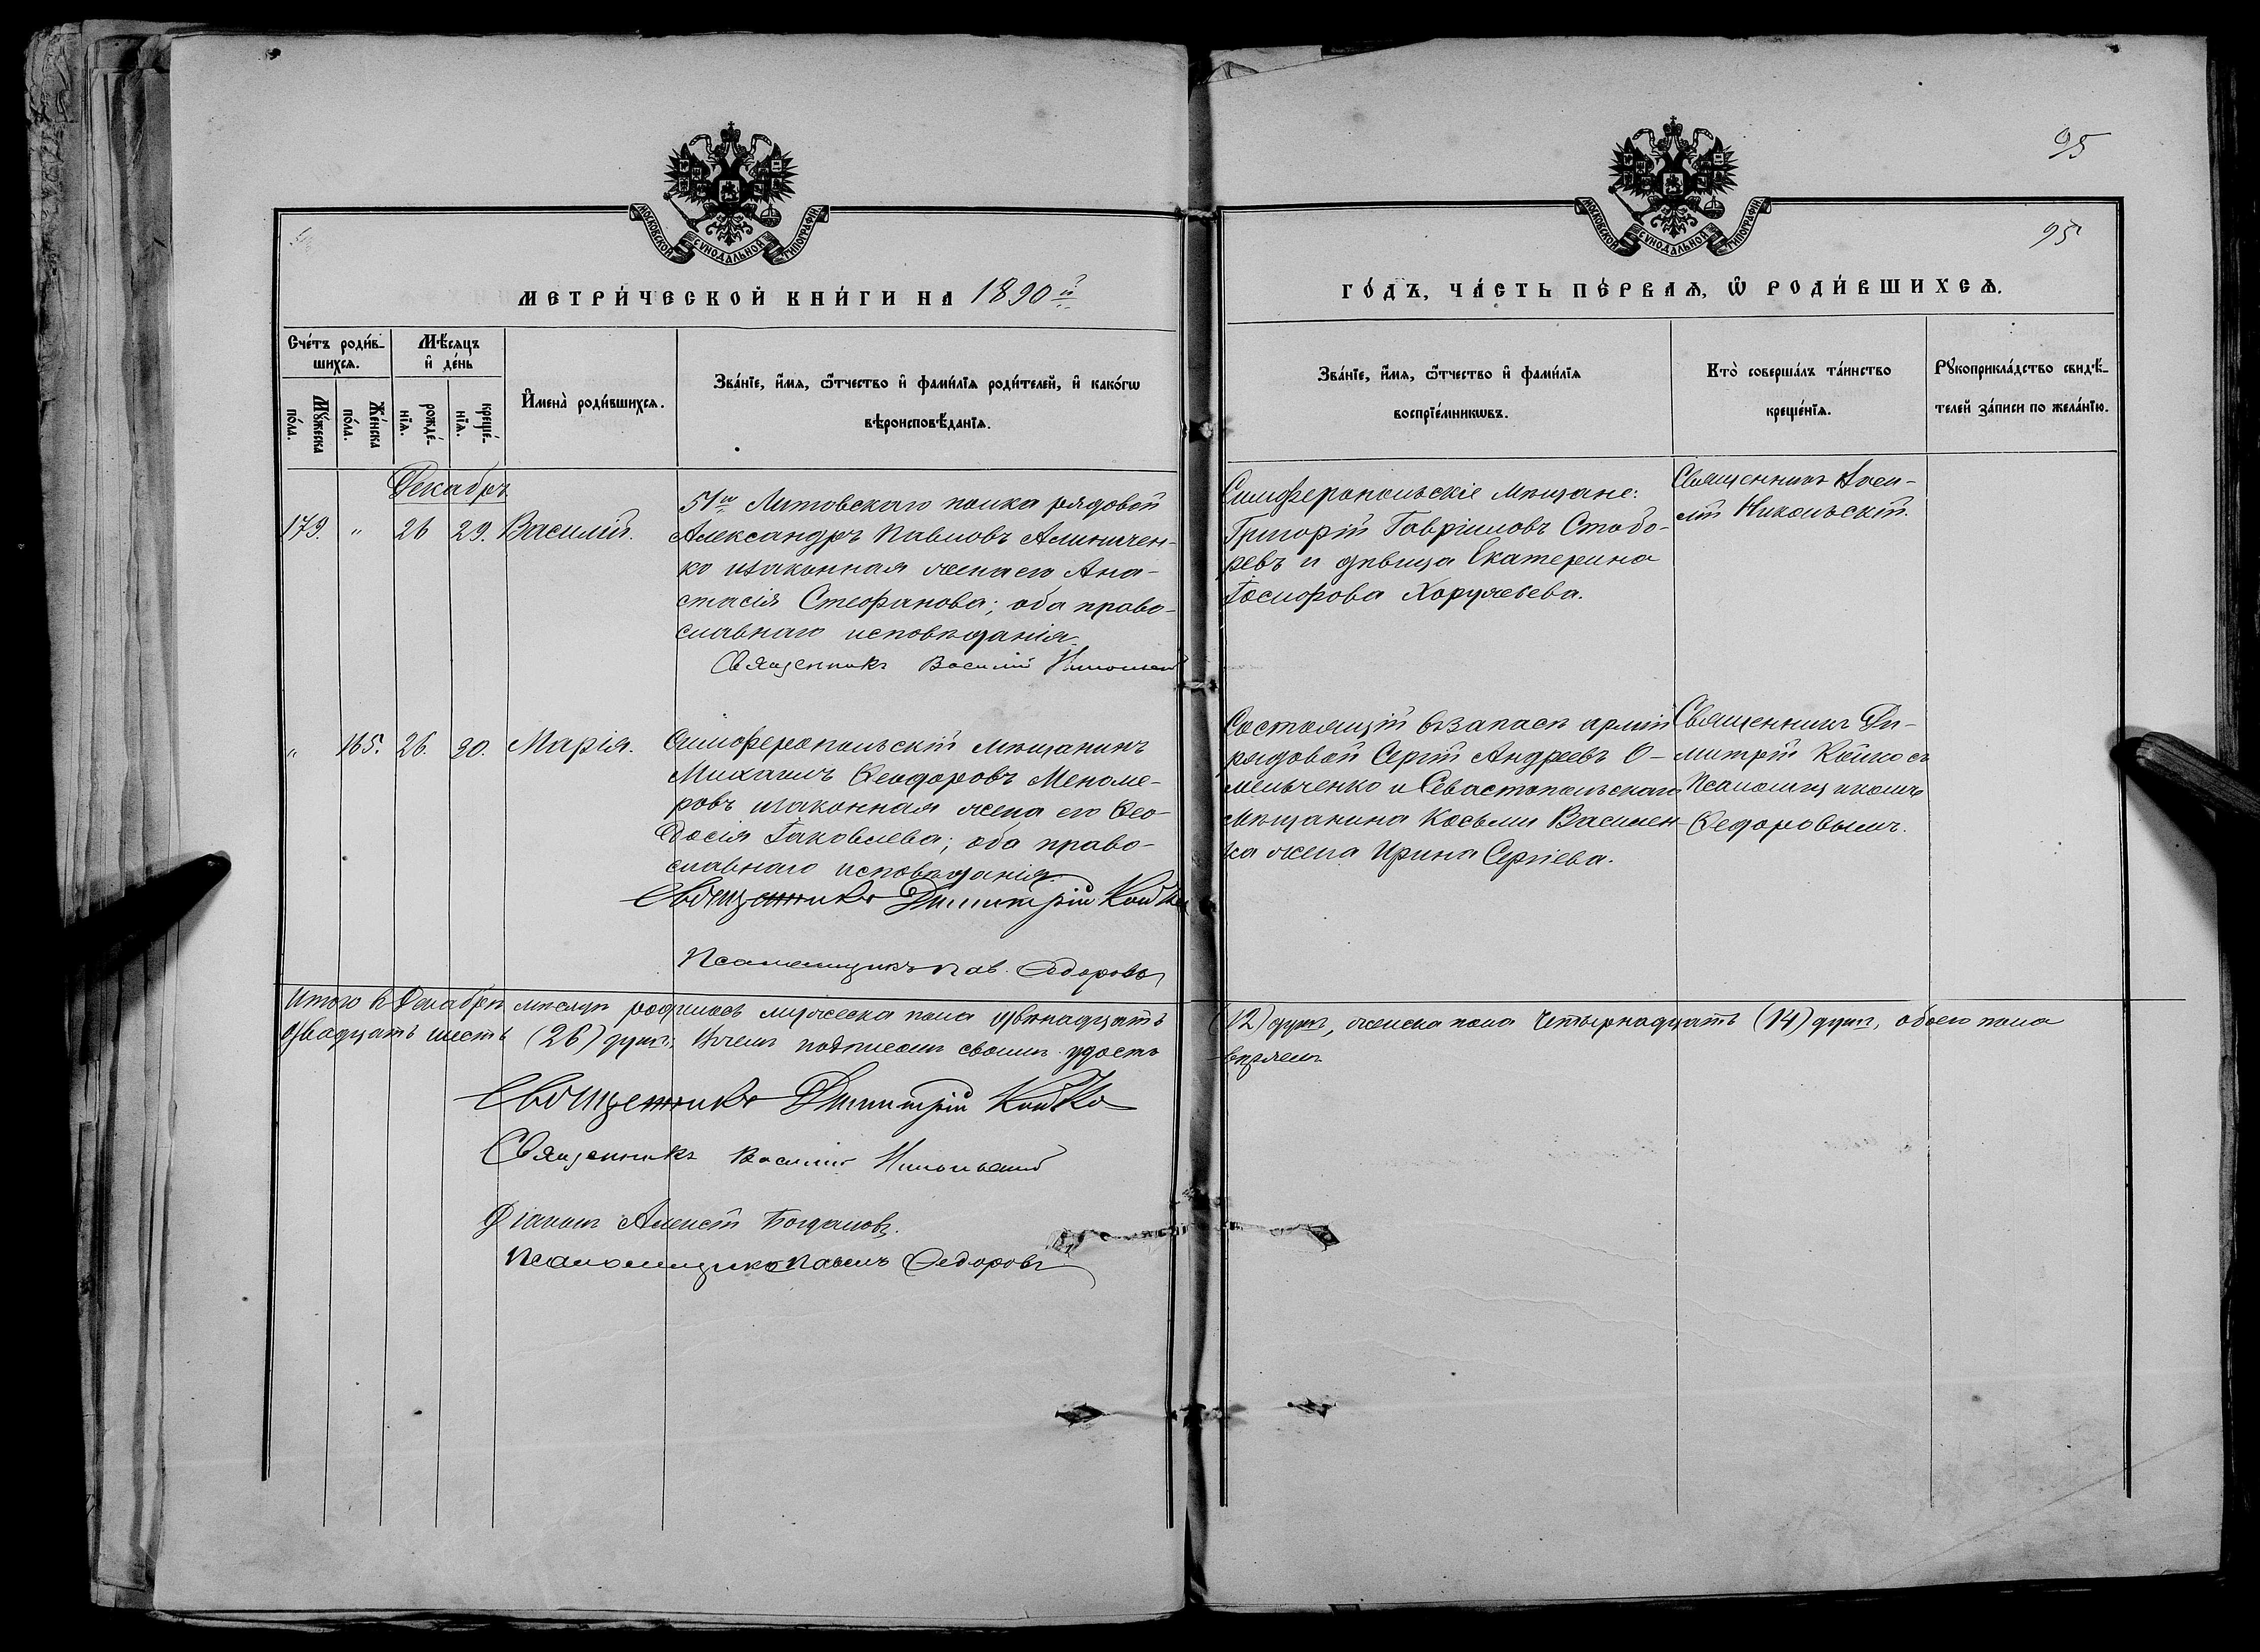 95
95
МОСКОВСКОЙ СѴНОДАЛЬНОЙ ТИПОГРАФІИ
МЕТРИ́ЧЕСКОЙ КНИ́ГИ НА 1890й
Сче́тъ роди́в-
шихсѧ.
Мѣ́сѧцъ
и҆ де́нь
Мꙋ́жеска
по́ла.
Же́нска
по́ла.
рожде́-
нїѧ.
креще́-
нїѧ.
И҆мена̀ роди́вшихсѧ.
Зва́нїе, и҆́мѧ, ѻ҆́тчество и҆ фами́лїѧ роди́телей, и҆ како́гѡ
вѣроисповѣ́данїѧ.
Декабрь
179. " 26 29. Василій.
51го Литовскаго полка рядовой
Александръ Павловъ Алиничен-
ко изаконная жена его Ана-
стасія Стефанова; оба право-
славнаго исповѣданія.
Священникъ Василій Никольскій
" 165. 26. 30. Марія.
Симферопольскій мѣщанинъ
Михаилъ Ѳеодоровъ Меноме-
ровъ изаконная жена его Ѳео-
досія Іаковлева; оба право-
славнаго исповѣданія.
Священникъ Димитрій Койко
Псаломщикъ Пав. Ѳедоровъ
Итого в Декабрѣ мѣсяцѣ родилось мужеска пола двѣнадцать
двадцать шесть (26) душъ; Вчемъ подписомъ своимъ удосто
Священникъ Димитрій Койко
Священникъ Василій Никольскій
Діаконъ Алексѣй Богдановъ.
Псаломщикъ Павелъ Ѳедоровъ
МОСКОВСКОЙ СѴНОДАЛЬНОЙ ТИПОГРАФІИ
ГО́ДЪ, ЧА́СТЬ ПЕ́РВАѦ, Ѡ҆ РОДИ́ВШИХСѦ.
Зва́нїе, и҆́мѧ, ѻ҆́тчество и҆ фами́лїѧ
воспрїе́мникѡвъ.
Кто̀ соверша́лъ та́инство
креще́нїѧ.
Рꙋкоприкла́дство свидѣ́-
телей за́писи по жела́нїю.
Симферопольскіе мѣщане:
Григорій Гавріиловъ Стобо-
ревъ и дѣвица Екатерина
Іосифова Хоружьева.
Священникъ Васи-
лій Никольскій.
Состоящій взапасѣ арміи
рядовой Сергій Андреевъ О-
мельченко и Севастопольскаго
мѣщанина Косьмы Василен-
ка жена Ирина Сергіева.
Священникъ Ди-
митрій Койко съ
Псаломщикомъ
Ѳедоровымъ.
(12) душъ, женска пола Четырнадцать (14) душъ, обоего пола
вѣряемъ